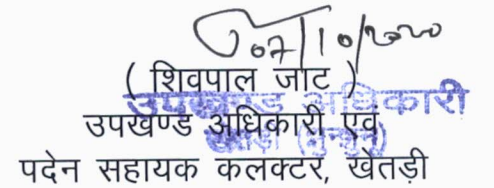 07/10/2020
( शिवपाल जाट )
उपखण्ड अधिकारी
उपखण्ड अधिकारी एवं
पदेन सहायक कलक्टर, खेतड़ी